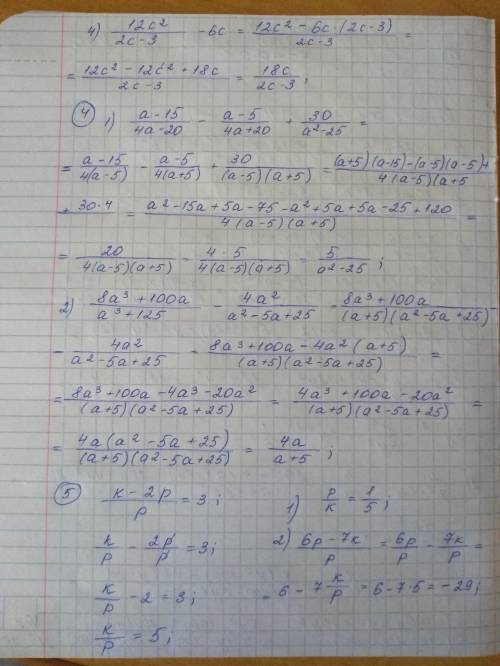 4) 12c²/(2c-3) - 6c = (12c² - 6c·(2c-3))/(2c-3) =
= (12c² - 12c² + 18c)/(2c-3) = 18c/(2c-3);
④ 1) (a-15)/(4a-20) - (a-5)/(4a+20) + 30/(a²-25) =
= (a-15)/(4(a-5)) - (a-5)/(4(a+5)) + 30/((a-5)(a+5)) = ((a+5)(a-15)-(a-5)(a-5)+)/(4(a-5)(a+5)
+ 30·4 = (a²-15a+5a-75-a²+5a+5a-25+120)/(4(a-5)(a+5)) =
= 20/(4(a-5)(a+5)) = (4·5)/(4(a-5)(a+5)) = 5/(a²-25);
2) (8a³+100a)/(a³+125) - 4a²/(a²-5a+25) = (8a³+100a)/((a+5)(a²-5a+25)) -
- 4a²/(a²-5a+25) = (8a³+100a-4a²(a+5))/((a+5)(a²-5a+25)) =
= (8a³+100a-4a³-20a²)/((a+5)(a²-5a+25)) = (4a³+100a-20a²)/((a+5)(a²-5a+25)) =
= (4a(a²-5a+25))/((a+5)(a²-5a+25)) = 4a/(a+5);
⑤ (к-2р)/р = 3;
к/р - 2р/р = 3;
к/р - 2 = 3;
к/р = 5;
1) р/к = 1/5;
2) (6р-7к)/р = 6р/р - 7к/р =
= 6 - 7 к/р = 6-7·5 = -29;